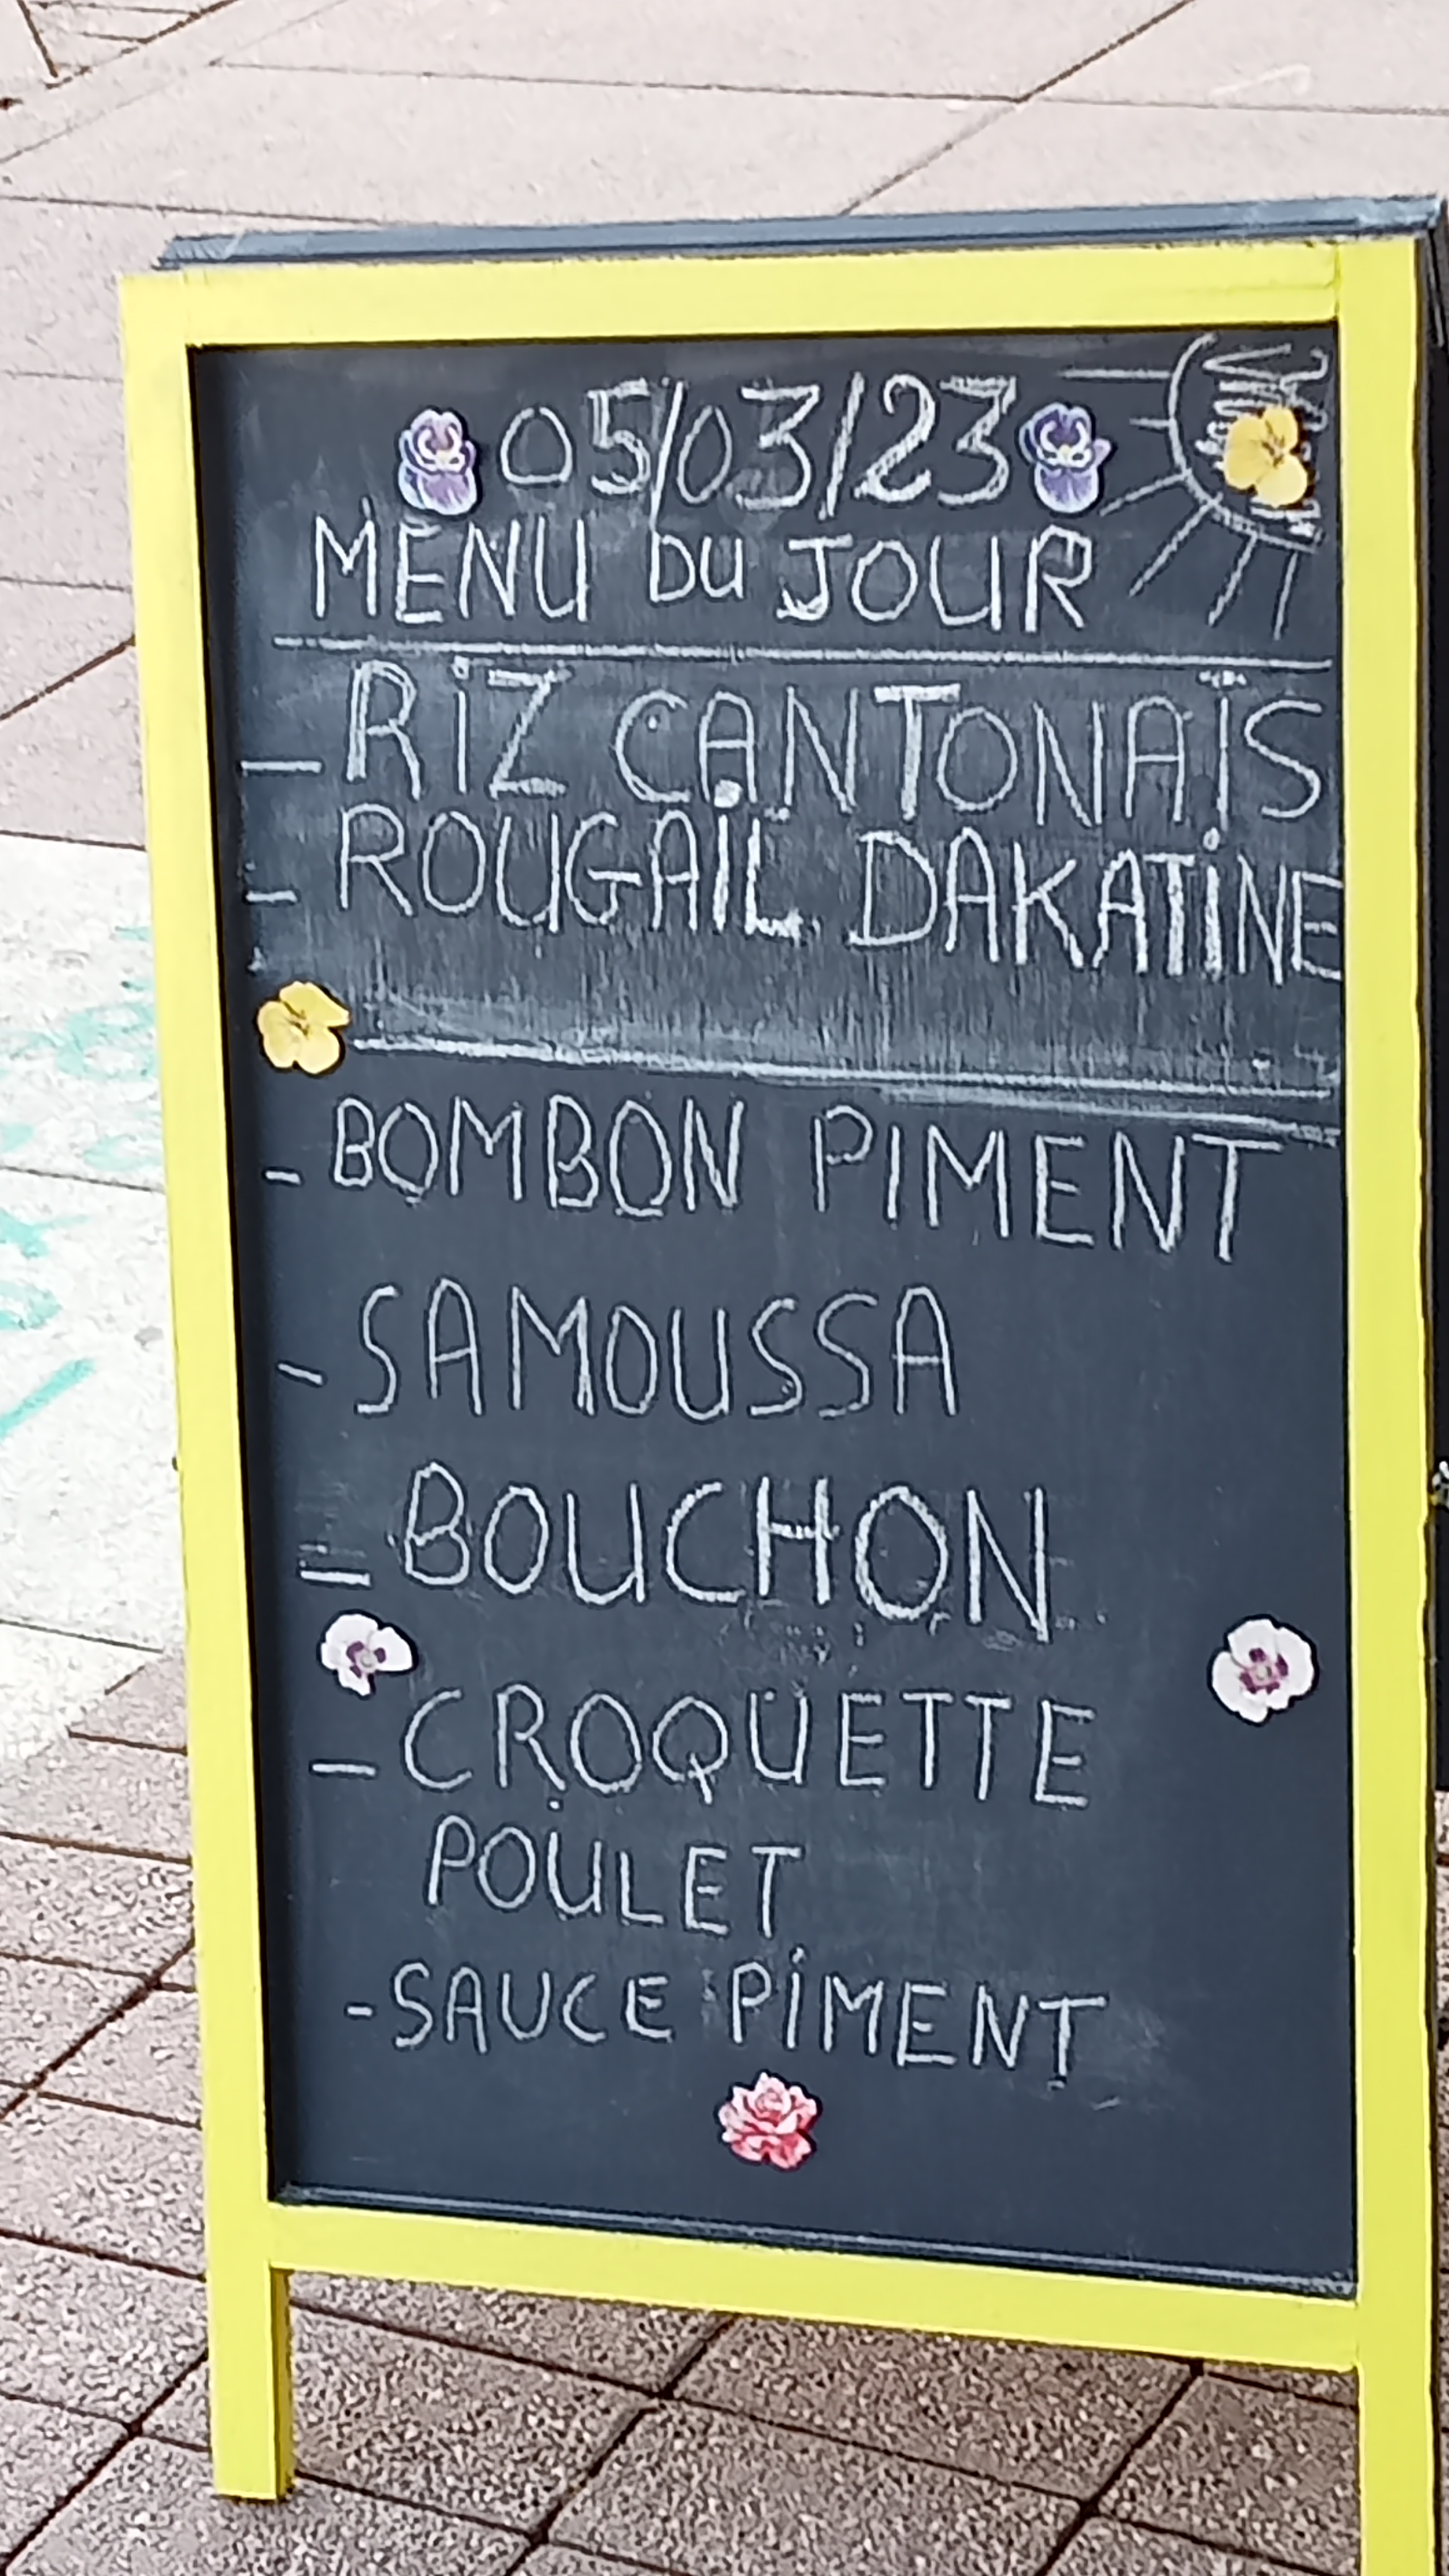 05/03/23
MENU DU JOUR
- RIZ CANTONAÏS
- ROUGAIL DAKATINE
- BOMBON PIMENT
- SAMOUSSA
- BOUCHON
- CROQUETTE
POULET
- SAUCE PIMENT